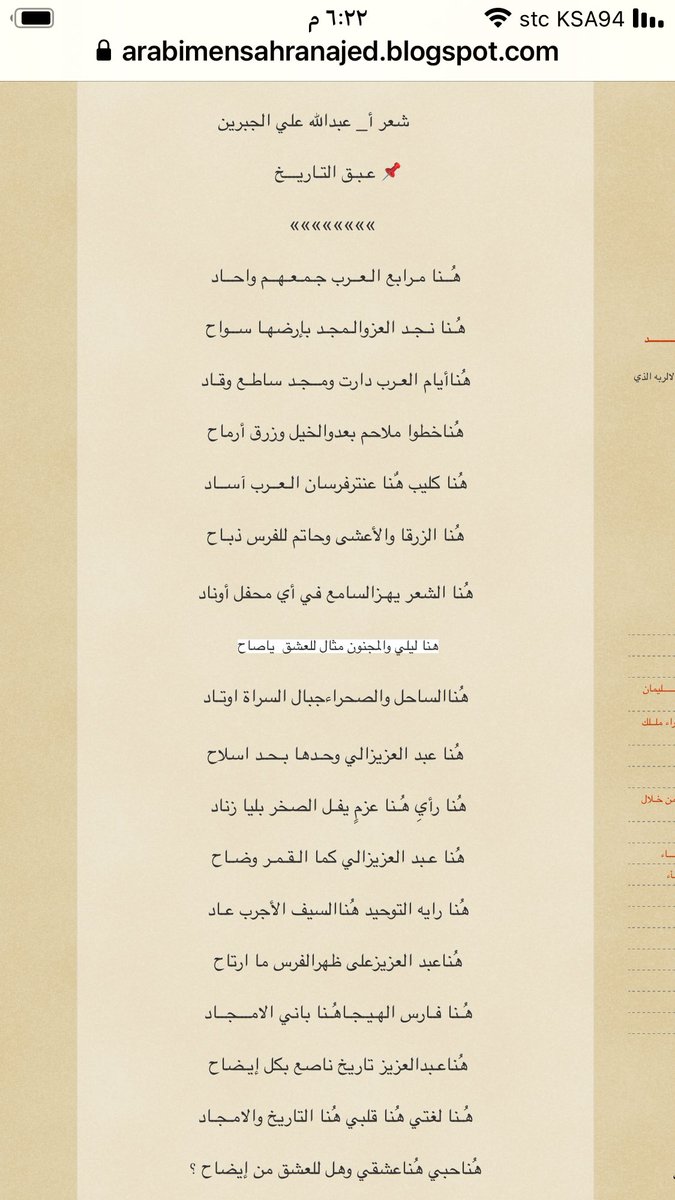 ٦:٢٢ م
stc KSA94
arabimensahranajed.blogspot.com
شعر أ_ عبدالله علي الجبرين
📌 عبق التاريــخ
»»»»»»»»
هُــنا مرابع العرب جمعهم واحـاد
هُـنا نـجـد العزوالمجد بإرضها سـواح
هُناأيام العرب دارت ومـجد ساطع وقـاد
هُناخطوا ملاحم بعدوالخيل وزرق أرماح
هُنا كليب هُنا عنترفرسان العرب آسـاد
هُنا الزرقا والأعشى وحاتم للفرس ذبـاح
هُنا الشعر يهزالسامع في أي محفل أوناد
هنا ليلي والمجنون مثال للعشق ياصاح
هُناالساحل والصحراءجبال السراة اوتـاد
هُنا عبد العزيزالي وحدها بـحـد اسلاح
هُنا رأيِ هُـنا عزمٍ يفل الصخر بليا زناد
هُنا عبد العزيزالي كما القمر وضـاح
هُنا رايه التوحيد هُناالسيف الأجرب عـاد
هُناعبد العزيزعلى ظهرالفرس ما ارتاح
هُـنا فـارس الهيجاهُنا باني الامــجـاد
هُناعبدالعزيز تاريخ ناصع بكل إيضاح
هُـنا لغتي هُنا قلبي هُنا التاريخ والامـجـاد
هُناحبي هُناعشقي وهل للعشق من إيضاح ؟
ــد
لالربه الذي
ـليمان
راء ملـك
ـن خـلال